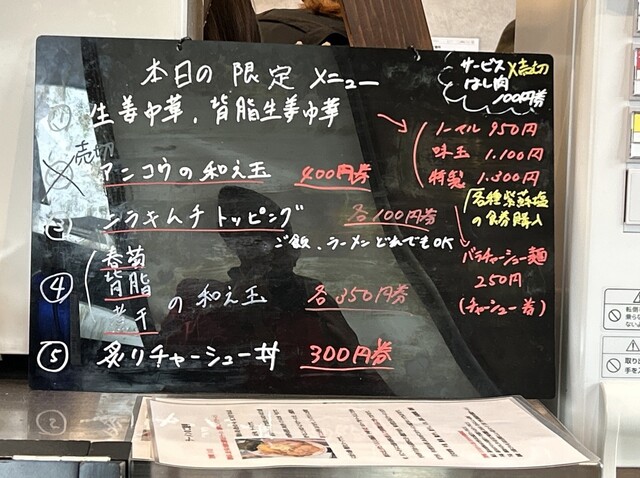 本日の限定メニュー
サービス ×売切
はし肉
100円券
① 生姜中華、背脂生姜中華
ノーマル 950円
味玉 1.100円
特製 1.300円
各種紫蘇塩
の食券購入
バラチャーシュー麺
250円
(チャーシュー着)
売切
アニコウの和え玉 400円券
③ ニラキムチトッピング 各100円券
ご飯、ラーメンどれでもOK
④ 春菊
背脂
煮干
の和え玉 各350円券
⑤ 炙りチャーシュー丼 300円券